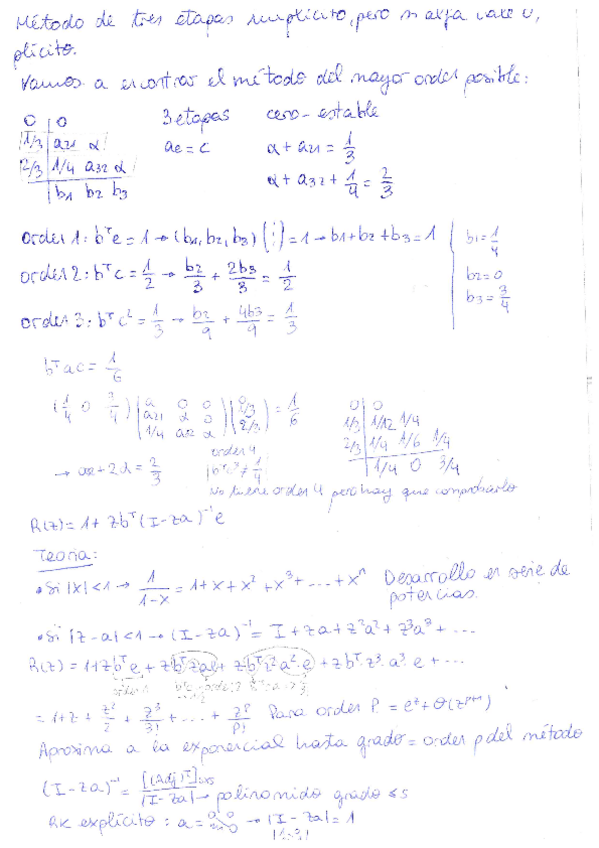 Método de tres etapas implícito, pero si alfa vale 0,
plícito.
Vamos a encontrar el método del mayor orden posible:
0 | 0
1/3 | a21 α
2/3 | 1/4 a32 α
b1 b2 b3
3 etapas
ae = c
cero-estable
α + a21 = 1/3
α + a32 + 1/4 = 2/3
orden 1: bᵀe = 1 → (b1, b2, b3) = 1 → b1 + b2 + b3 = 1
orden 2: bᵀc = 1/2 → b2/3 + 2b3/3 = 1/2
orden 3: bᵀc² = 1/3 → b2/9 + 4b3/9 = 1/3
b1 = 1/4
b2 = 0
b3 = 3/4
bᵀac = 1/6
(1/4 0 3/4) (a 0 0 / a21 α 0 / 1/4 a32 α) (0 1/3 2/3) = 1/6
→ a32 + 2α = 2/3
0 | 0
1/3 | 1/12 1/4
2/3 | 1/4 1/6 1/4
1/4 0 3/4
orden 4
bᵀc³ ≠ 1/4
No tiene orden 4 pero hay que comprobarlo
R(z) = 1 + zbᵀ(I - za)⁻¹e
Teoria:
• Si |x| < 1 → 1/(1-x) = 1 + x + x² + x³ + ... + xⁿ Desarrollo en serie de
potencias.
• Si |z-a| < 1 → (I - za)⁻¹ = I + za + z²a² + z³a³ + ...
R(z) = 1 + zbᵀe + zbᵀzae + zbᵀz²a²e + zbᵀz³a³e + ...
= 1 + z + z²/2 + z³/3! + ... + zᵖ/p! Para orden P = eᶻ + O(zᵖ⁺¹)
Aproxima a la exponencial hasta grado = orden p del método
(I - za)⁻¹ = [(Adj)ᵀ] / |I - za| → polinomio grado ≤ s
RK explícito: a = → |I - za| = 1